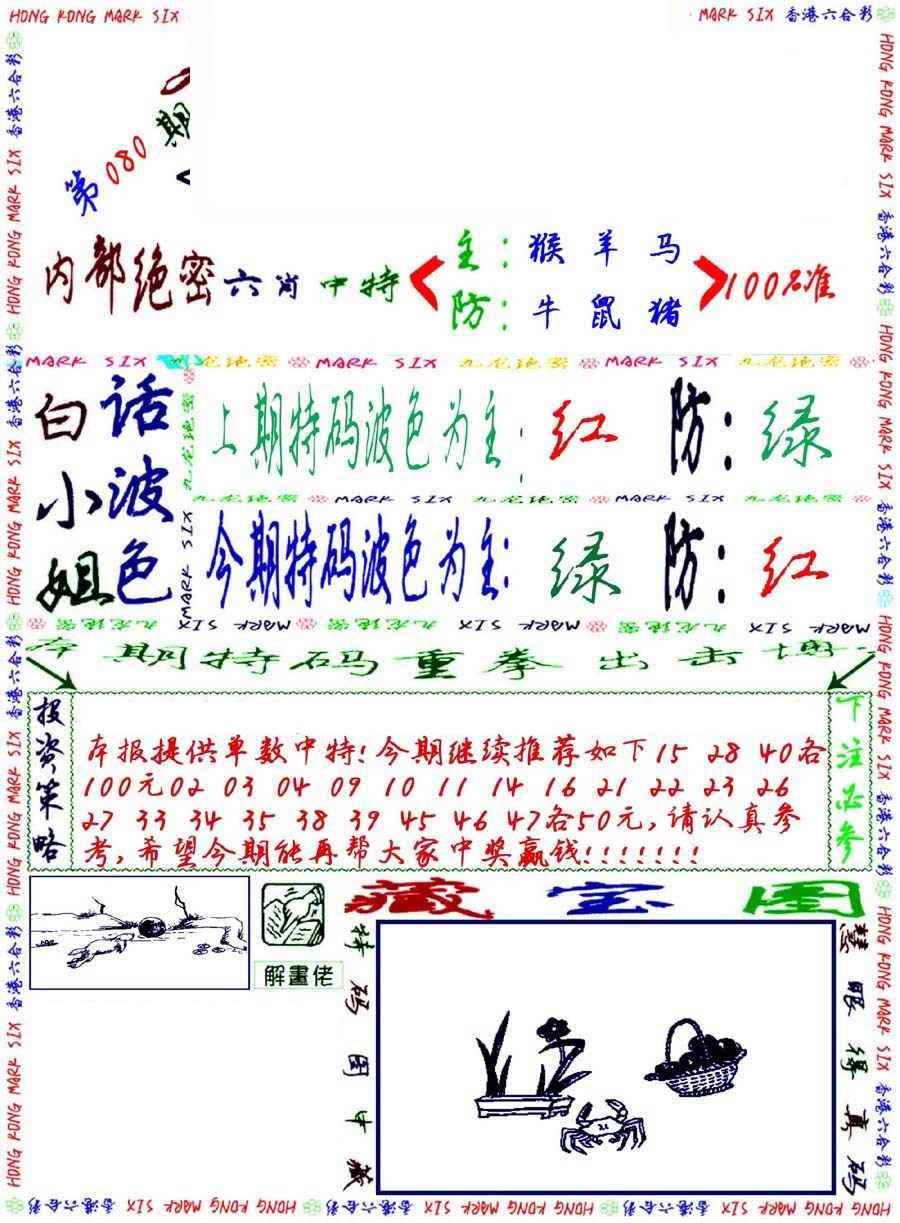 HONG KONG MARK SIX
MARK SIX 香港六合彩
第080期
内部绝密六肖中特
主：猴 羊 马
防：牛 鼠 猪
100%准
MARK SIX 九龙绝密 MARK SIX 九龙绝密 MARK SIX 九龙绝密
白话
小波
姐色
上期特码波色为主：红 防：绿
九龙绝密 MARK SIX 九龙绝密 MARK SIX
今期特码波色为主：绿 防：红
九龙绝密 MARK SIX 九龙绝密 MARK SIX 九龙绝密 MARK SIX
期特码重拳出击
投资策略
本报提供单数中特！今期继续推荐如下15 28 40各
100元02 03 04 09 10 11 14 16 21 22 23 26
27 33 34 35 38 39 45 46 47各50元，请认真参
考，希望今期能再帮大家中奖赢钱！！！！！！！
下注必参
解畫佬
藏宝图
特码图中藏
慧眼得真码
HONG KONG MARK SIX 香港六合彩